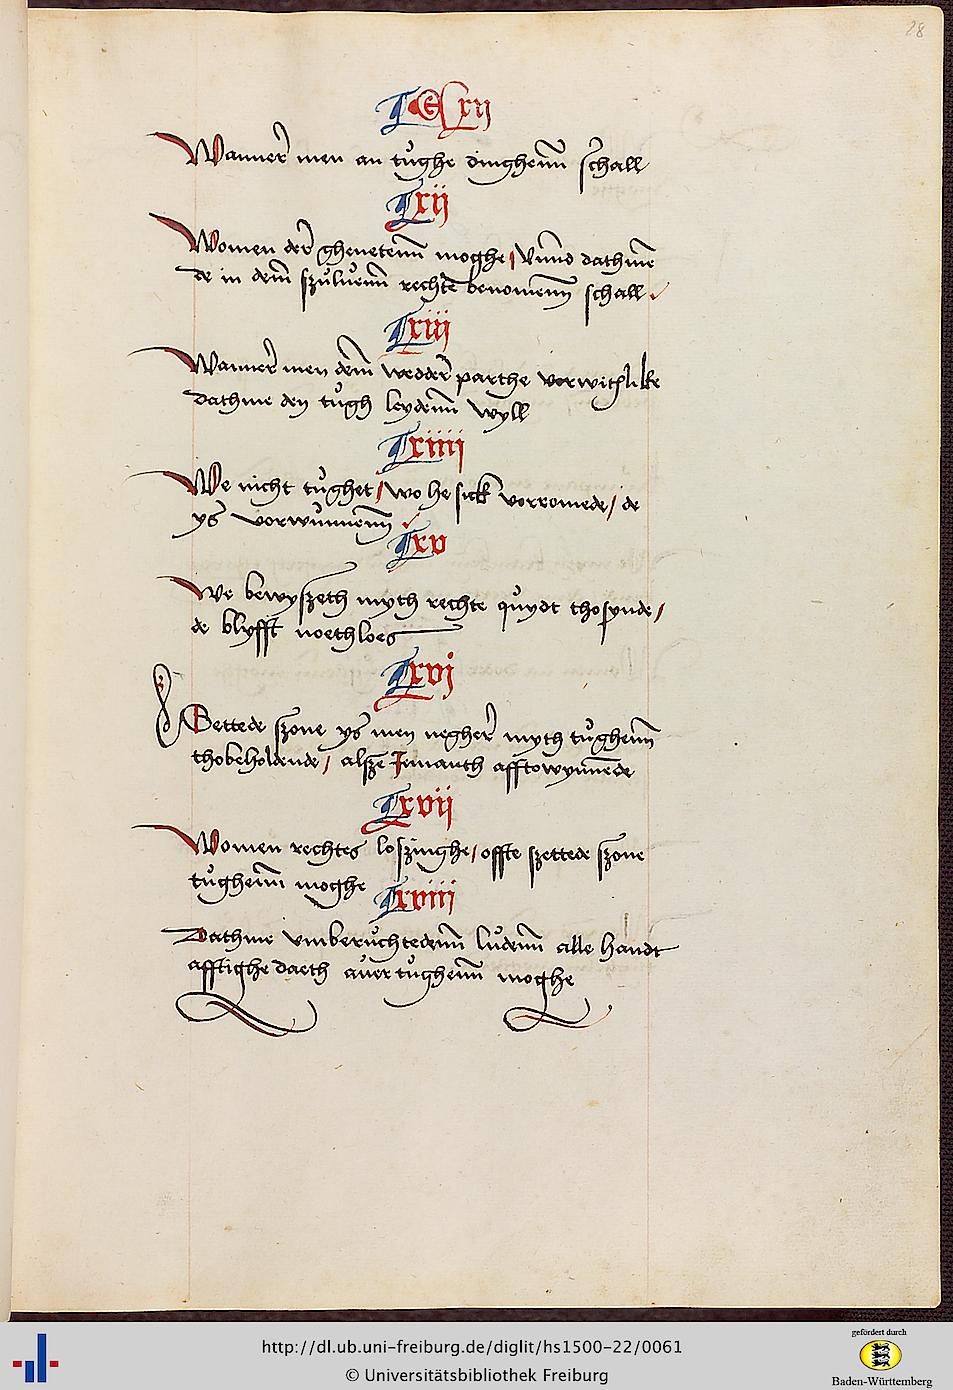 28
xij
Wanner men an tůghe dinghenn schall
xij
Women der ghenetenn moghe / Vnnd dathme
de in dem szůluenn rechte benomenn schall
xiij
Wanner men dem wedder parthe vorwitlike
dathme den tůgh leydenn wyll
xiiij
We nicht tůghet / wo he sick vorromede / de
ys vorwunnenn
xv
We bewyszeth myth rechte quydt tho synde /
de blyfft noethloes
xvj
Settede szone ys men negher myth tůghenn
thobeholdende / alsze Jemanth afftowynnēde
xvij
Women rechtes loszinghe / offte szettede szone
tůghenn moghe
xviij
Dathme vmberůchtedenn lůdenn alle handt
afftighe daeth auer tůghenn moghe
http://dl.ub.uni-freiburg.de/diglit/hs1500-22/0061
© Universitätsbibliothek Freiburg
gefördert durch
Baden-Württemberg